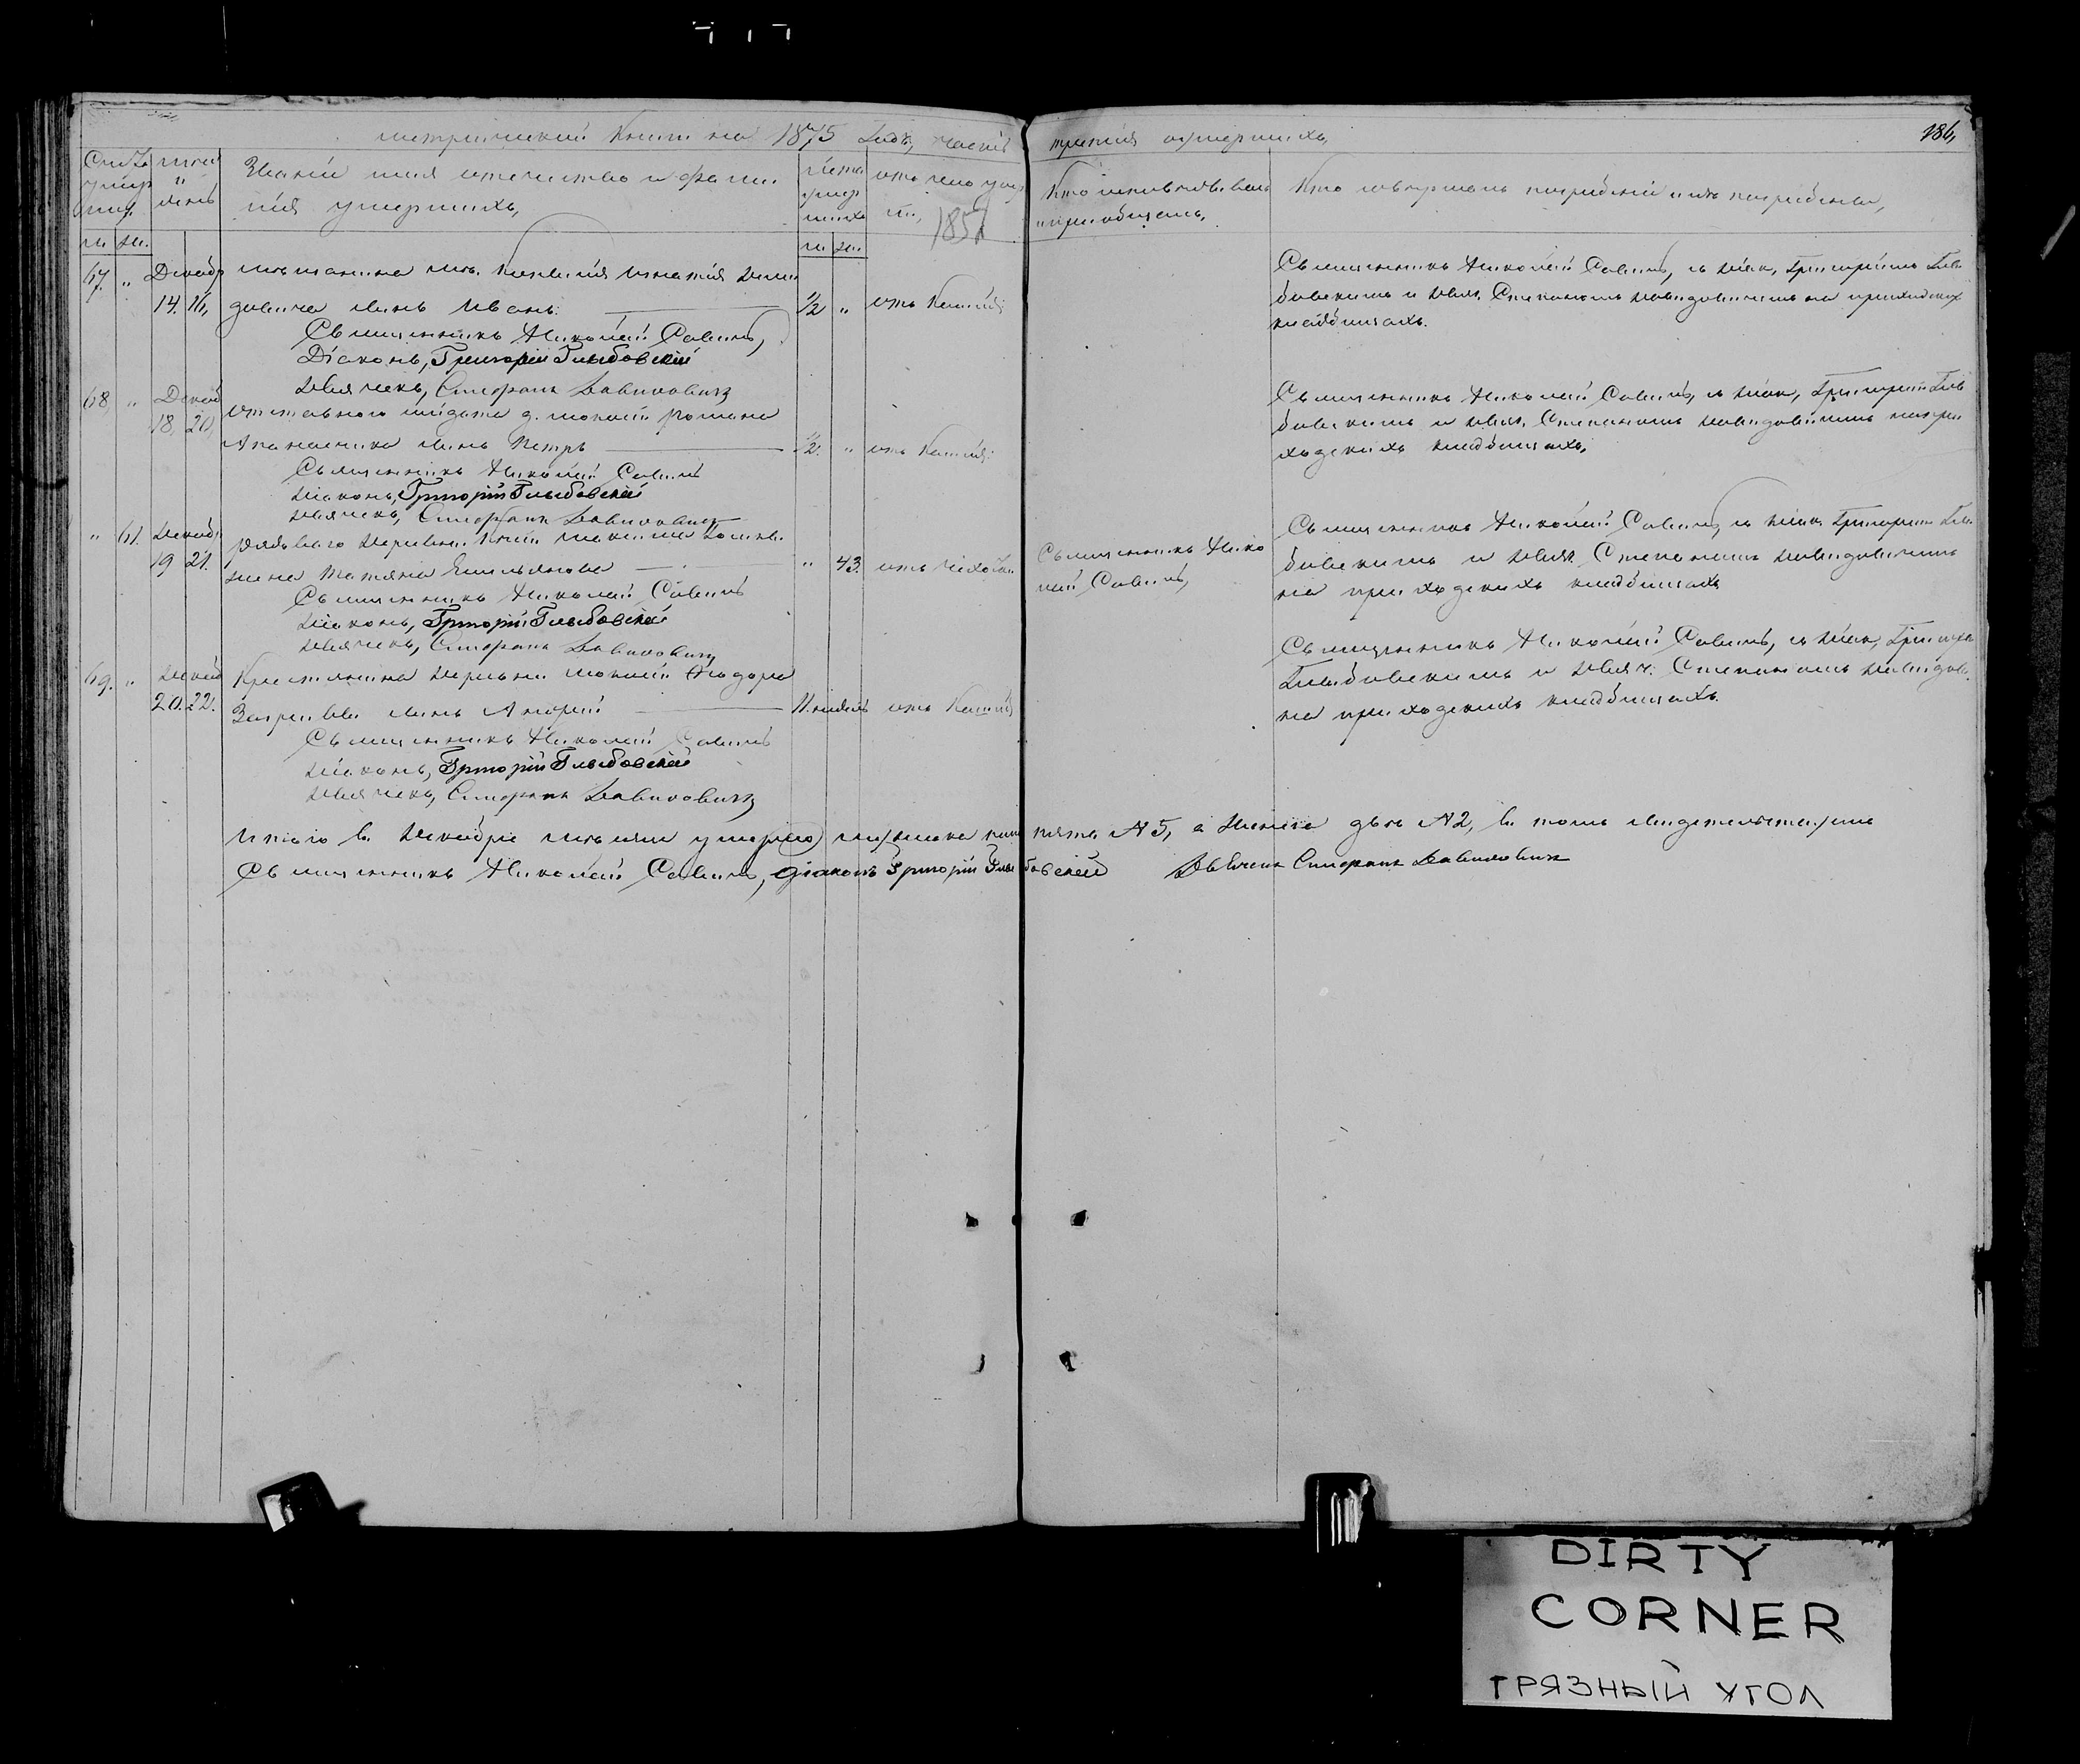 метрической книги на 1875 годъ, часть третія о умершихъ,
186,
Званіе имя отечество и фами
лія умершихъ,
лѣта
умер
шихъ
отъ чего умер
ли,
1851
Кто исповѣдывалъ
и приобщалъ,
Кто совершалъ погребеніе и гдѣ погребены,
м. ж.
м. ж.
67. " Декабр
14. 16,
сынъ Иванъ.
1/2 " отъ Кашля
Священникъ Николай Савичъ,
Діаконъ, Григорій Глыбовскій
Дьячекъ, Стефанъ Давидовичъ
Священникъ Николай Савичъ, съ Діак. Григоріемъ Глы
бовскимъ и Дьяч. Стефаномъ Давидовичемъ на приходских
кладбищахъ.
68 " Декаб
18, 20,
отставного солдата д. Романа
сынъ Петръ
1/2. " отъ Кашля
Священникъ Николай Савичъ
Діаконъ, Григорій Глыбовскій
Дьячекъ, Стефанъ Давидовичъ
Священникъ Николай Савичъ, съ Діак, Григоріем Глы
бовскимъ и Дьяч. Стефаномъ Давидовичемъ на при
ходскихъ кладбищахъ,
" 61. Декаб.
19 21.
рядового деревни
жена Татяна Емельянова
" 43. отъ
Священникъ Нико
лай Савичъ,
Священникъ Николай Савичъ
Діаконъ, Григорій Глыбовскій
Дьячекъ, Стефанъ Давидовичъ
Священникъ Николай Савичъ, съ Діак. Григоріем Глы
бовскимъ и Дьяч. Стефаномъ Давидовичемъ
на приходскихъ кладбищахъ
69. " Декаб
20. 22.
Крестьянина деревни Федора
сынъ Андрей
11. недель отъ Кашля
Священникъ Николай Савичъ
Діаконъ, Григорій Глыбовскій
Дьячекъ, Стефанъ Давидовичъ
Священникъ Николай Савичъ, съ Діак, Григоріе
Глыбовскимъ и Дьяч. Стефаномъ Давидови.
на приходскихъ кладбищахъ.
Итого въ Декабрѣ месяцѣ умерло мужеска пола пять №5, а Женска двѣ №2, въ томъ свидетельствуемъ
Священникъ Николай Савичъ, діаконъ Григорій Глыбовскій Дьячекъ Стефанъ Давидовичъ
DIRTY
CORNER
ГРЯЗНЫЙ УГОЛ